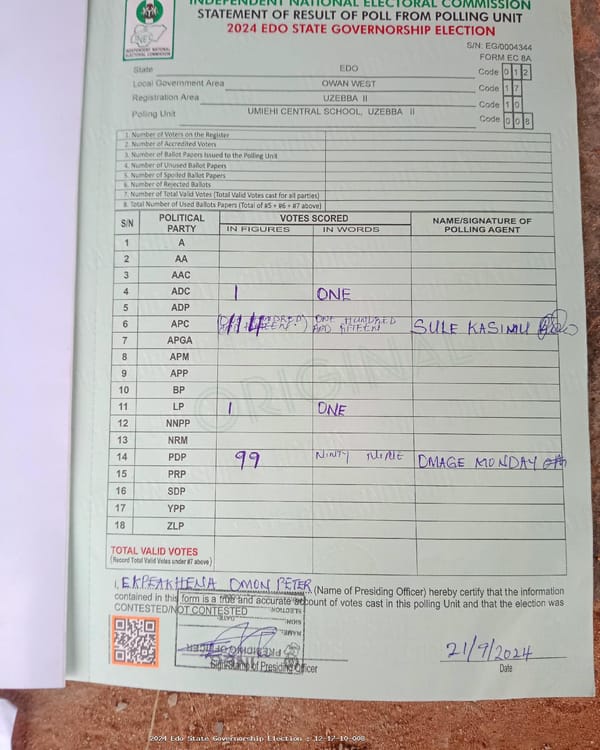 INDEPENDENT NATIONAL ELECTORAL COMMISSION
STATEMENT OF RESULT OF POLL FROM POLLING UNIT
2024 EDO STATE GOVERNORSHIP ELECTION
INDEPENDENT NATIONAL ELECTORAL COMMISSION
S/N: EG/0004344
FORM EC 8A
State EDO Code 0 1 2
Local Government Area OWAN WEST Code 1 7
Registration Area UZEBBA II Code 1 0
Polling Unit UMIEHI CENTRAL SCHOOL, UZEBBA II Code 0 0 8
1. Number of Voters on the Register
2. Number of Accredited Voters
3. Number of Ballot Papers Issued to the Polling Unit
4. Number of Unused Ballot Papers
5. Number of Spoiled Ballot Papers
6. Number of Rejected Ballots
7. Number of Total Valid Votes (Total Valid Votes cast for all parties)
8. Total Number of Used Ballots Papers (Total of #5 + #6 + #7 above)
S/N POLITICAL PARTY VOTES SCORED NAME/SIGNATURE OF POLLING AGENT
IN FIGURES IN WORDS
1 A
2 AA
3 AAC
4 ADC 1 ONE
5 ADP
6 APC 114 ONE HUNDRED SULE KASIMU
7 APGA
8 APM
9 APP
10 BP
11 LP 1 ONE
12 NNPP
13 NRM
14 PDP 99 NINTY NINE OMAGE MONDAY
15 PRP
16 SDP
17 YPP
18 ZLP
ORIGINAL
TOTAL VALID VOTES
(Record Total Valid Votes under #7 above)
I, EKPEAKHENA OMON PETER (Name of Presiding Officer) hereby certify that the information
contained in this form is a true and accurate account of votes cast in this polling Unit and that the election was
CONTESTED/NOT CONTESTED
DATE:
SIGN:
NAME:
PRESIDING OFFICER
Sign/Stamp of Presiding Officer
21/9/2024
Date
2024 Edo State Governorship Election : 12-17-10-008